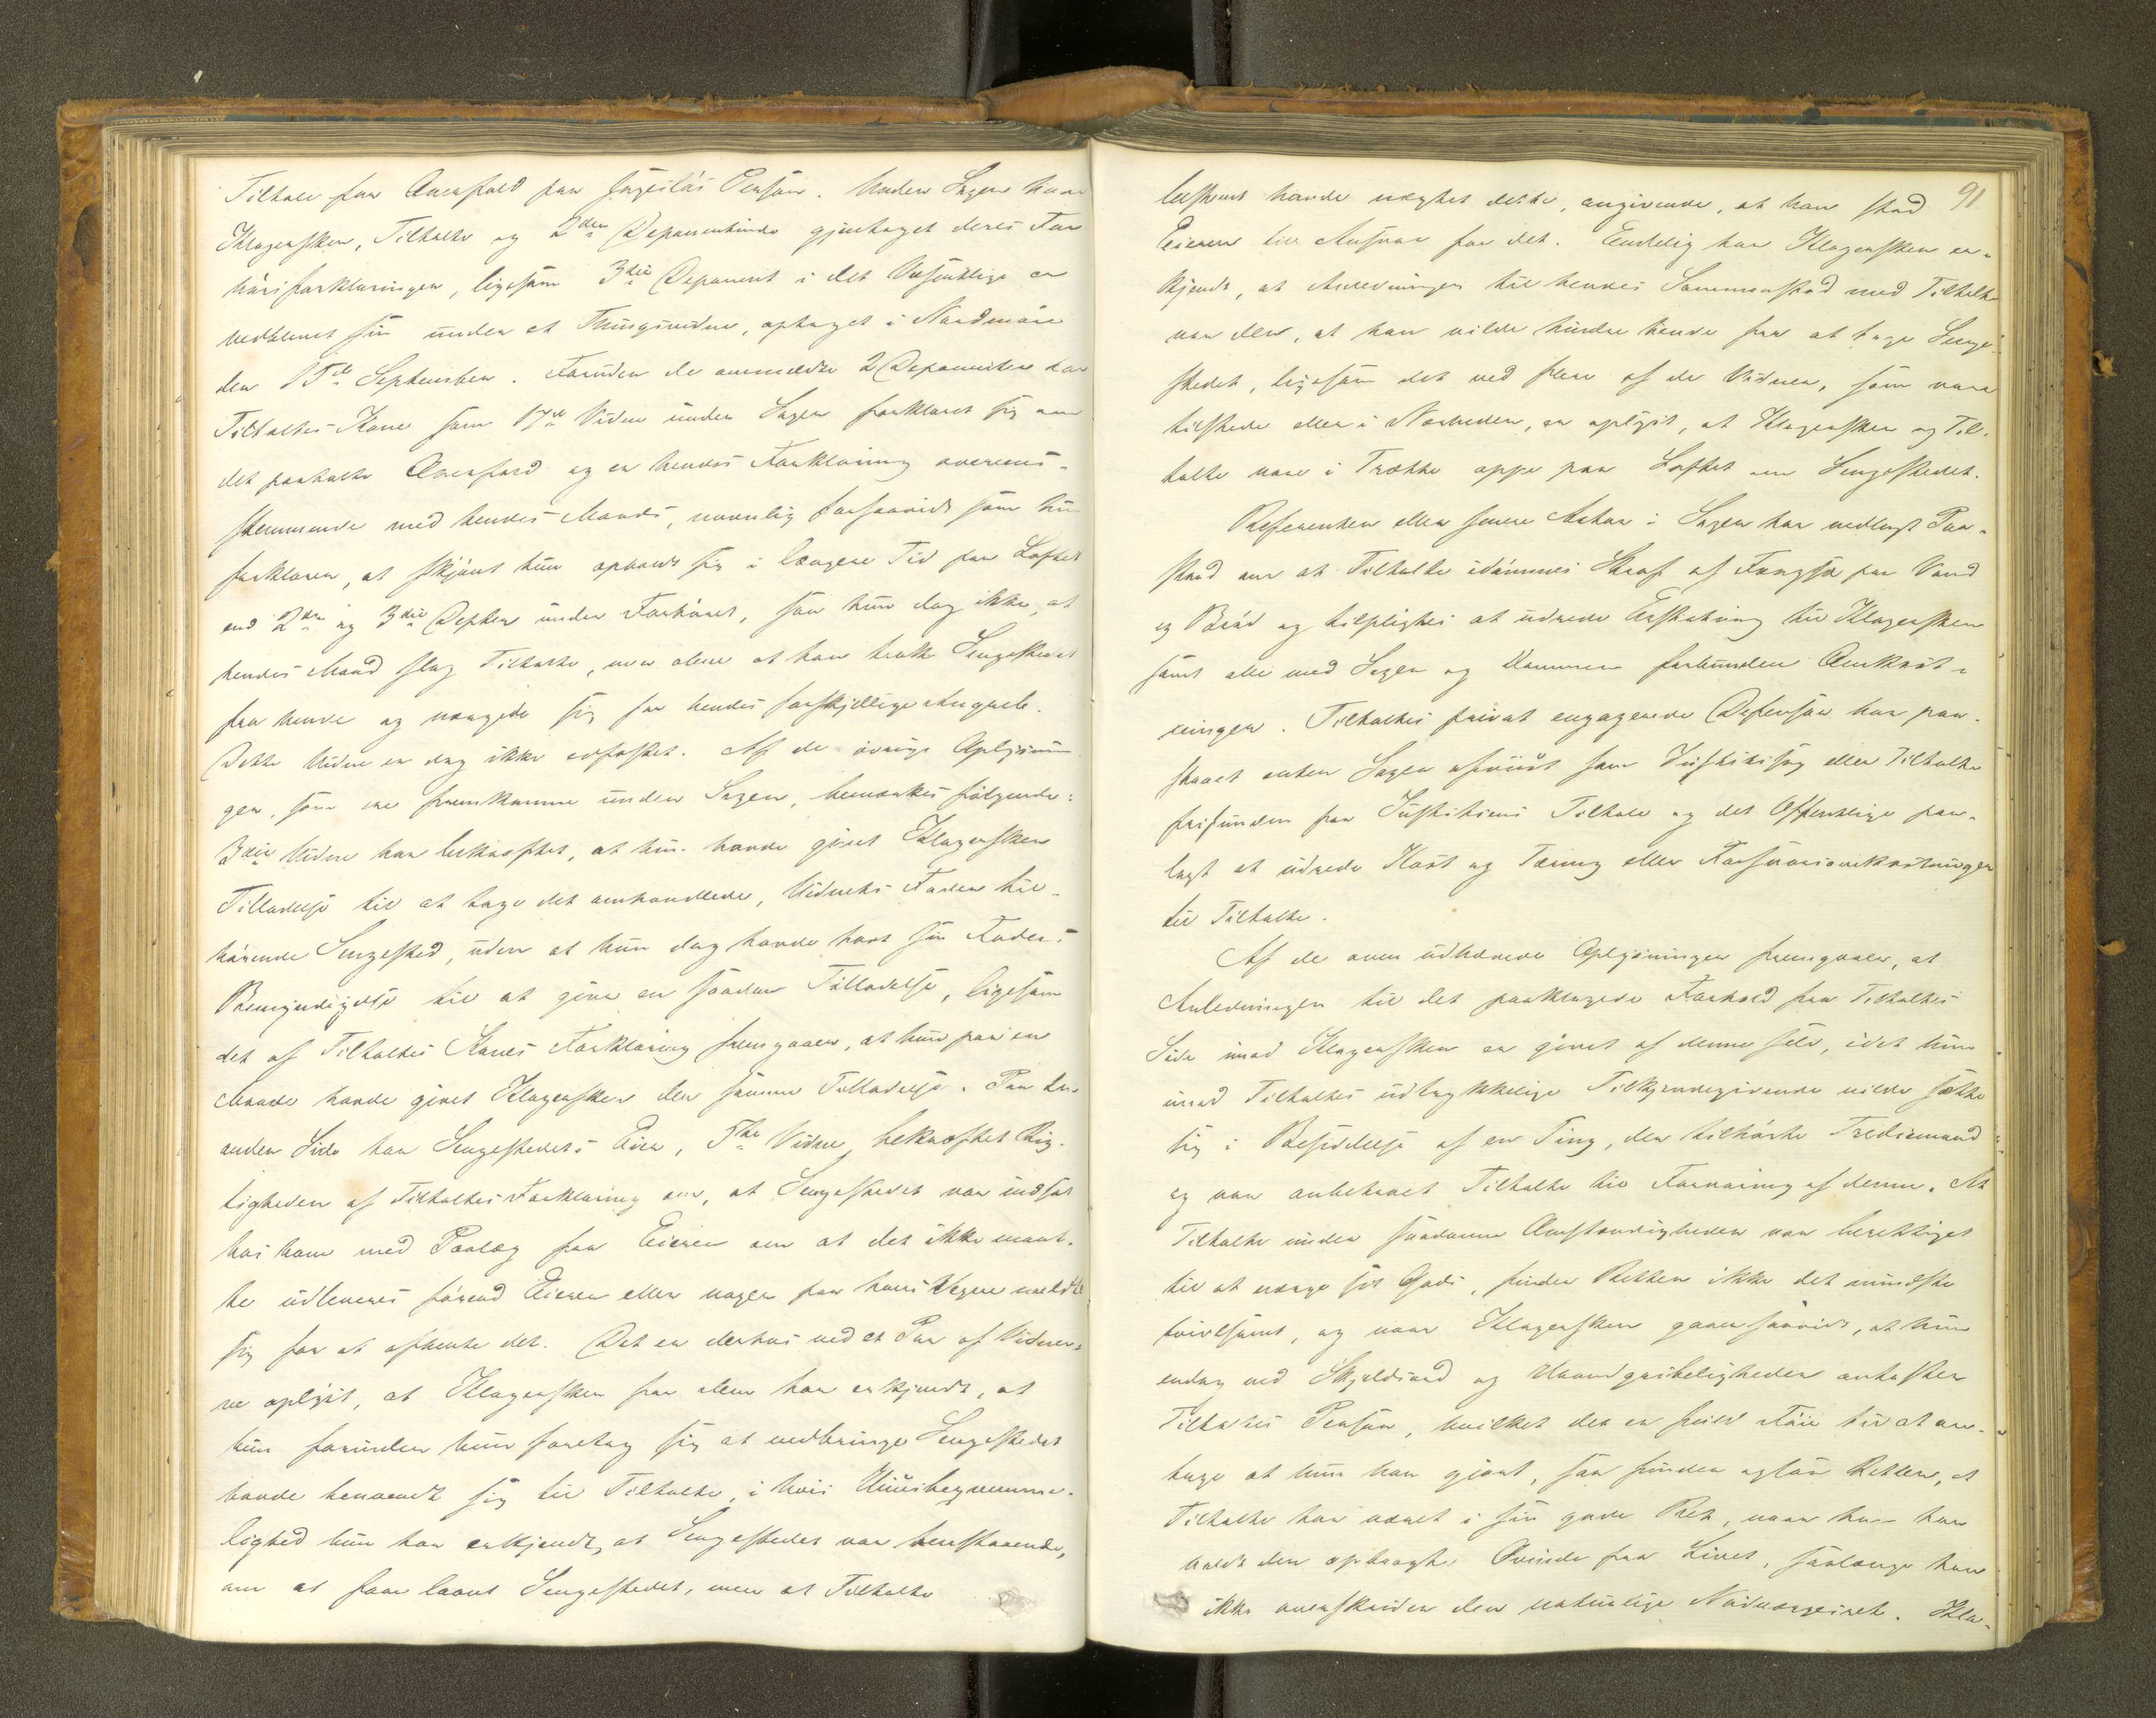 Tiltale for Overfald paa Ingeilôs Person. Under Sagen har
Klagersken, Tiltalte og 2den Deponentinde gjentaget deres For-
hørsforklaringer, ligesom 3die Deponent i det Væsentlige er
vedblevet sin under et Thingsvidne, optaget i Nordmøre
den 15de September. Foruden de anmeldte 2 Deponenter har
Tiltaltes Kone som 17de Vidne under Sagen forklaret sig om
det paatalte Overfald og er hendes Forklaring overens-
stemmende med hendes Mands, navnlig forsaavidt som hun
forklarer, at skjønt hun opholdt sig i længere Tid paa Loftet
end 2den og 3die Depten under Forhøret, saa hun dog ikke, at
hendes Mand slog Tiltalte, men alene at han trak Sengestedet
fra hende og værgede sig for hendes forskjellige Angreb.
Dette Vidne er dog ikke edfæstet. Af de øvrige Oplysnin-
ger, som ere fremkomne under Sagen, bemærkes følgende:
3die Vidne har bekræftet, at hun havde givet Klagersken
Tilladelse til at tage det omhandlede, Vidnets Fader til-
hørende Sengested, uden at hun dog havde havt sin Faders
Bemyndigelse til at give en saadan Tilladelse, ligesom
det af Tiltaltes Kones Forklaring fremgaaer, at hun paa en
Maade havde givet Klagersken den samme Tilladelse. Paa den
anden Side har Sengestedets Eier, 5te Vidne, bekræftet Rig-
tigheden af Tiltaltes Forklaring om, at Sengestedet var indsat
hos ham med Paalæg fra Eieren om at det ikke maat-
te udleveres førend Eieren eller nogen paa hans Vegne meldte
sig for at afhente det. Det er derhos ved et Par af Vidner-
ne oplyst, at Klagersken for dem har erkjendt, at
hun forinden hun foretog sig at nedbringe Sengestedet
havde henvendt sig til Tiltalte, i hvis Huusbeqvemme-
lighed hun har erkjendt, at Sengestedet var henstaaende,
om at faae laant Sengestedet, men at Tiltalte
91
bestemt havde nægtet dette, angivende, at han stod
Eieren til Ansvar for det. Endelig har Klagersken er-
kjendt, at Anledningen til hendes Sammenstød med Tiltalte
var den, at han vilde hindre hende fra at tage Senge-
stedet, ligesom det ved flere af de Vidner, som vare
tilstede eller i Nærheden, er oplyst, at Klagersken og Til-
talte vare i Trætte oppe paa Loftet om Sengestedet.
Referenten eller senere Actor i Sagen har nedlagt Paa-
stand om at Tiltalte idømmes Straf af Fængsel paa Vand
og Brød og tilpligtes at udrede Erstatning til Klagersken
samt alle med Sagen og Dommen forbundne Omkost-
ninger. Tiltaltes privat engagerede Defensor har paa-
staaet enten Sagen afviist som Justitssag eller Tiltalte
frifunden for Justitiens Tiltale og det Offentlige paa-
lagt at udrede Kost og Tæring eller Forsvarsomkostninger
til Tiltalte.
Af de oven udhævede Oplysninger fremgaaer, at
Anledningen til det paaklagede Forhold fra Tiltaltes
Side imod Klagersken er givet af denne selv, idet hun
imod Tiltaltes udtrykkelige Tilkjendegivende vilde sætte
sig i Besiddelse af en Ting, der tilhørte Trediemand
og var anbetroet Tiltalte til Forvaring af denne. At
Tiltalte under saadanne Omstændigheder var berettiget
til at værge sit Gods, finder Retten ikke det mindste
tvivlsomt, og naar Klagersken gaaer saavidt, at hun
endog ved Skjeldsord og Haandgribeligheder antaster
Tiltaltes Person, hvilket der er fuld Føie til at an-
tage at hun har gjort, saa finder ogsaa Retten, at
Tiltalte har været i sin gode Ret, naar han har
holdt den opbragte Qvinde fra Livet, saalænge han
ikke overskrider den naturlige Nødværgeret. Kla-